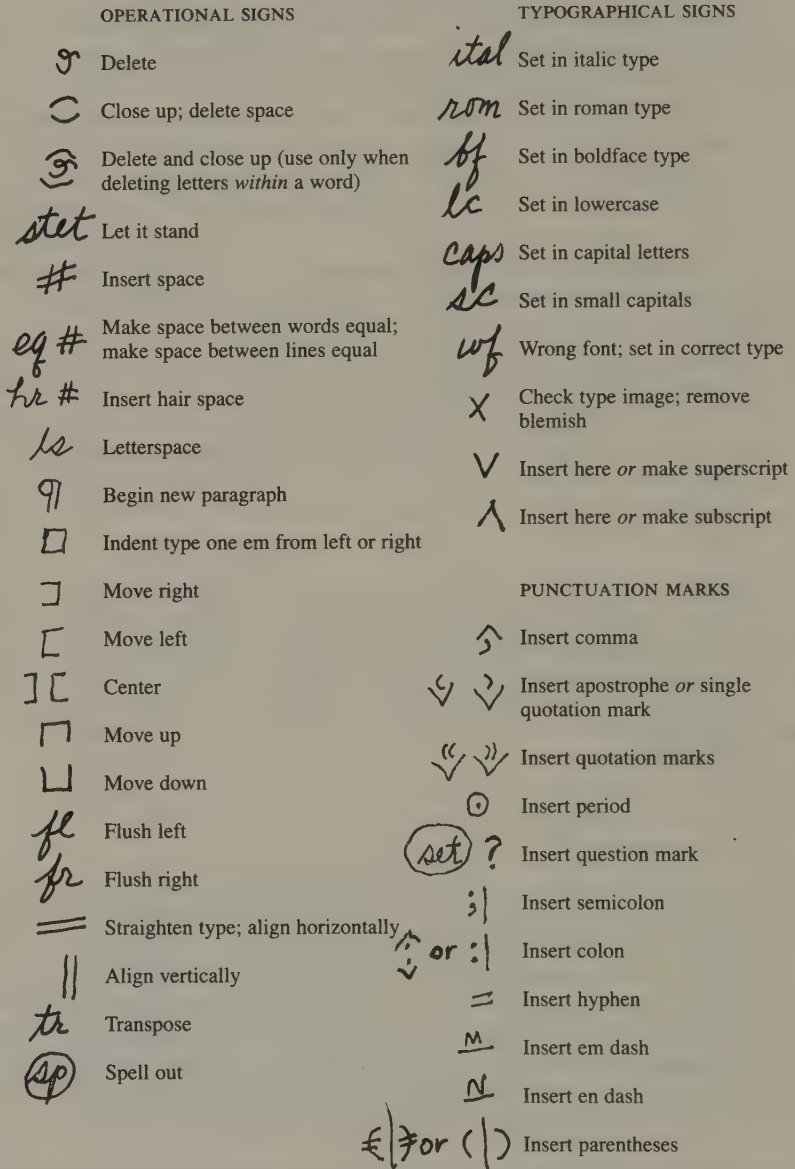 OPERATIONAL SIGNS
Delete
Close up; delete space
Delete and close up (use only when
deleting letters within a word)
stet Let it stand
# Insert space
eq # Make space between words equal;
make space between lines equal
hr # Insert hair space
ls Letterspace
¶ Begin new paragraph
Indent type one em from left or right
] Move right
[ Move left
] [ Center
Move up
Move down
fl Flush left
fr Flush right
Straighten type; align horizontally
|| Align vertically
tr Transpose
sp Spell out
TYPOGRAPHICAL SIGNS
ital Set in italic type
rom Set in roman type
bf Set in boldface type
lc Set in lowercase
caps Set in capital letters
sc Set in small capitals
wf Wrong font; set in correct type
X Check type image; remove
blemish
V Insert here or make superscript
Insert here or make subscript
PUNCTUATION MARKS
Insert comma
Insert apostrophe or single
quotation mark
Insert quotation marks
Insert period
set ? Insert question mark
;| Insert semicolon
: or :| Insert colon
= Insert hyphen
M Insert em dash
N Insert en dash
(|) or (|) Insert parentheses